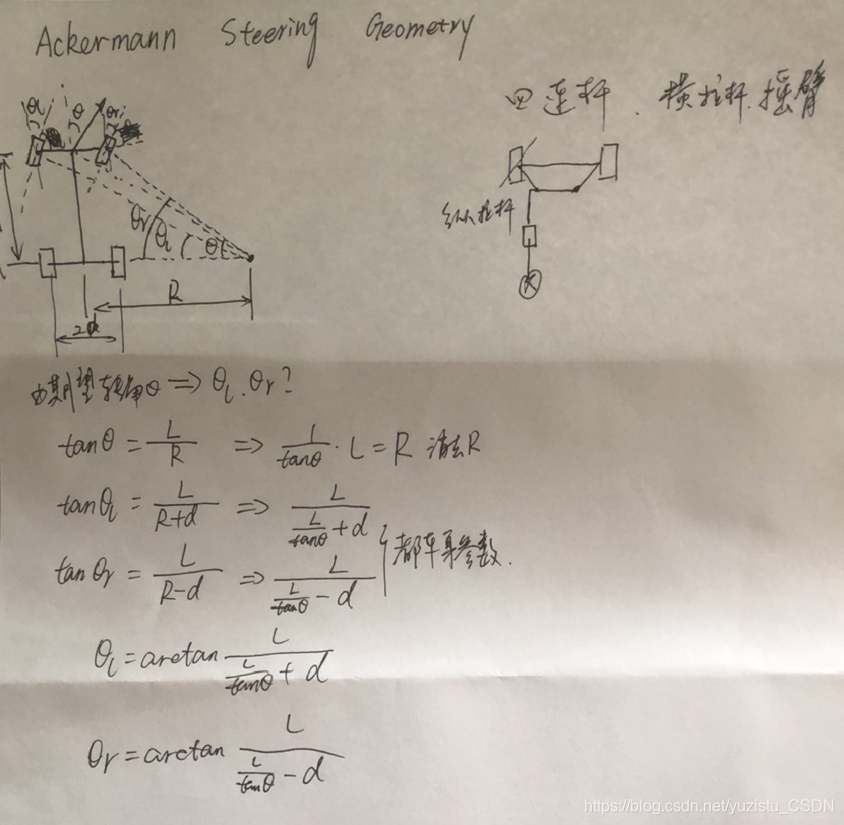 Ackermann Steering Geometry
四连杆、横拉杆、摇臂
θl θ θr
纵拉杆
θr θ θl
R
2d
由期望转角θ ⇒ θl、θr?
tanθ = L/R ⇒ 1/tanθ · L = R 消去R
tanθl = L/(R+d) ⇒ L/(L/tanθ + d)
都车身参数.
tanθr = L/(R-d) ⇒ L/(L/tanθ - d)
θl = arctan L/(L/tanθ + d)
θr = arctan L/(L/tanθ - d)
https://blog.csdn.net/yuzistu_CSDN